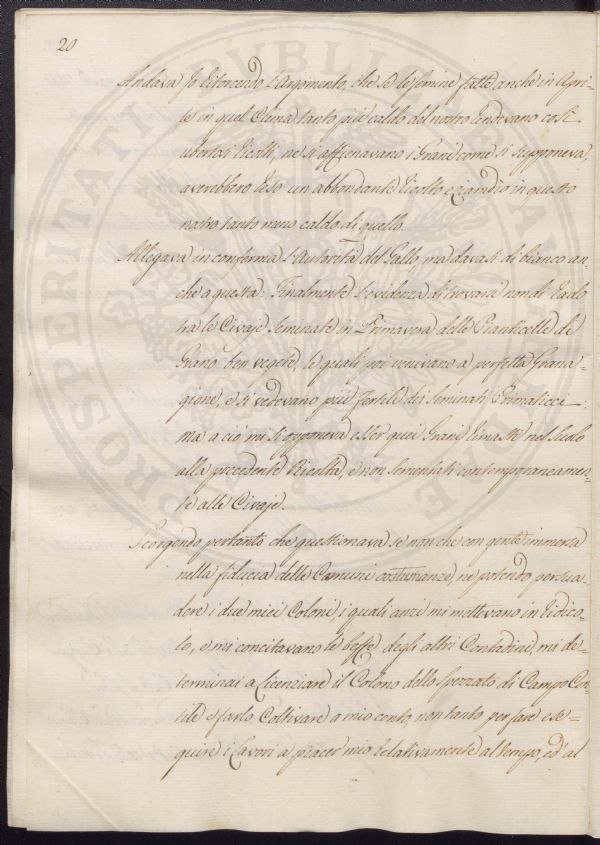 20
Andava Io ritorcendo l'Argomento, che se le semine fatte anche in Apri=
le in quel Clima tanto più caldo del nostro rendevano così
ubertosi Ricolti, ne si affienavano i Grani come si supponeva,
averebbero reso un abbondante Ricolto eziandio in questo
nostro tanto meno caldo di quello.
Allegava in conferma l'Autorità del Gallo, ma davasi di bianco an=
che a questa: Finalmente l'evidenza di trovarsi non di rado
tra le Civaje seminate in Primavera delle Pianticelle di
Grano ben vegete, le quali poi venivano a perfetta Grana=
gione, e si vedevano più fertili dei seminati Primaticci:
ma a ciò mi si opponeva esser quei Grani rimasti nel suolo
alla precedente Ricolta, e non sementati contemporaneamen=
te alle Civaje.
Scorgendo pertanto che questionava se non che con gente immersa
nella fiducia delle Comuni costumanze, ne potendo persua=
dere i due miei Coloni, i quali anzi mi mettevano in ridico=
lo, e mi concitavano le beffe degli altri Contadini, mi de=
terminai a Licenziare il Colono dello Spezzato di Campo Cor=
tile e farlo Coltivare a mio conto, non tanto per fare ese=
quire i Lavori a piacer mio relativamente al tempo, ed al
PROSPERITATI PVBLICAE